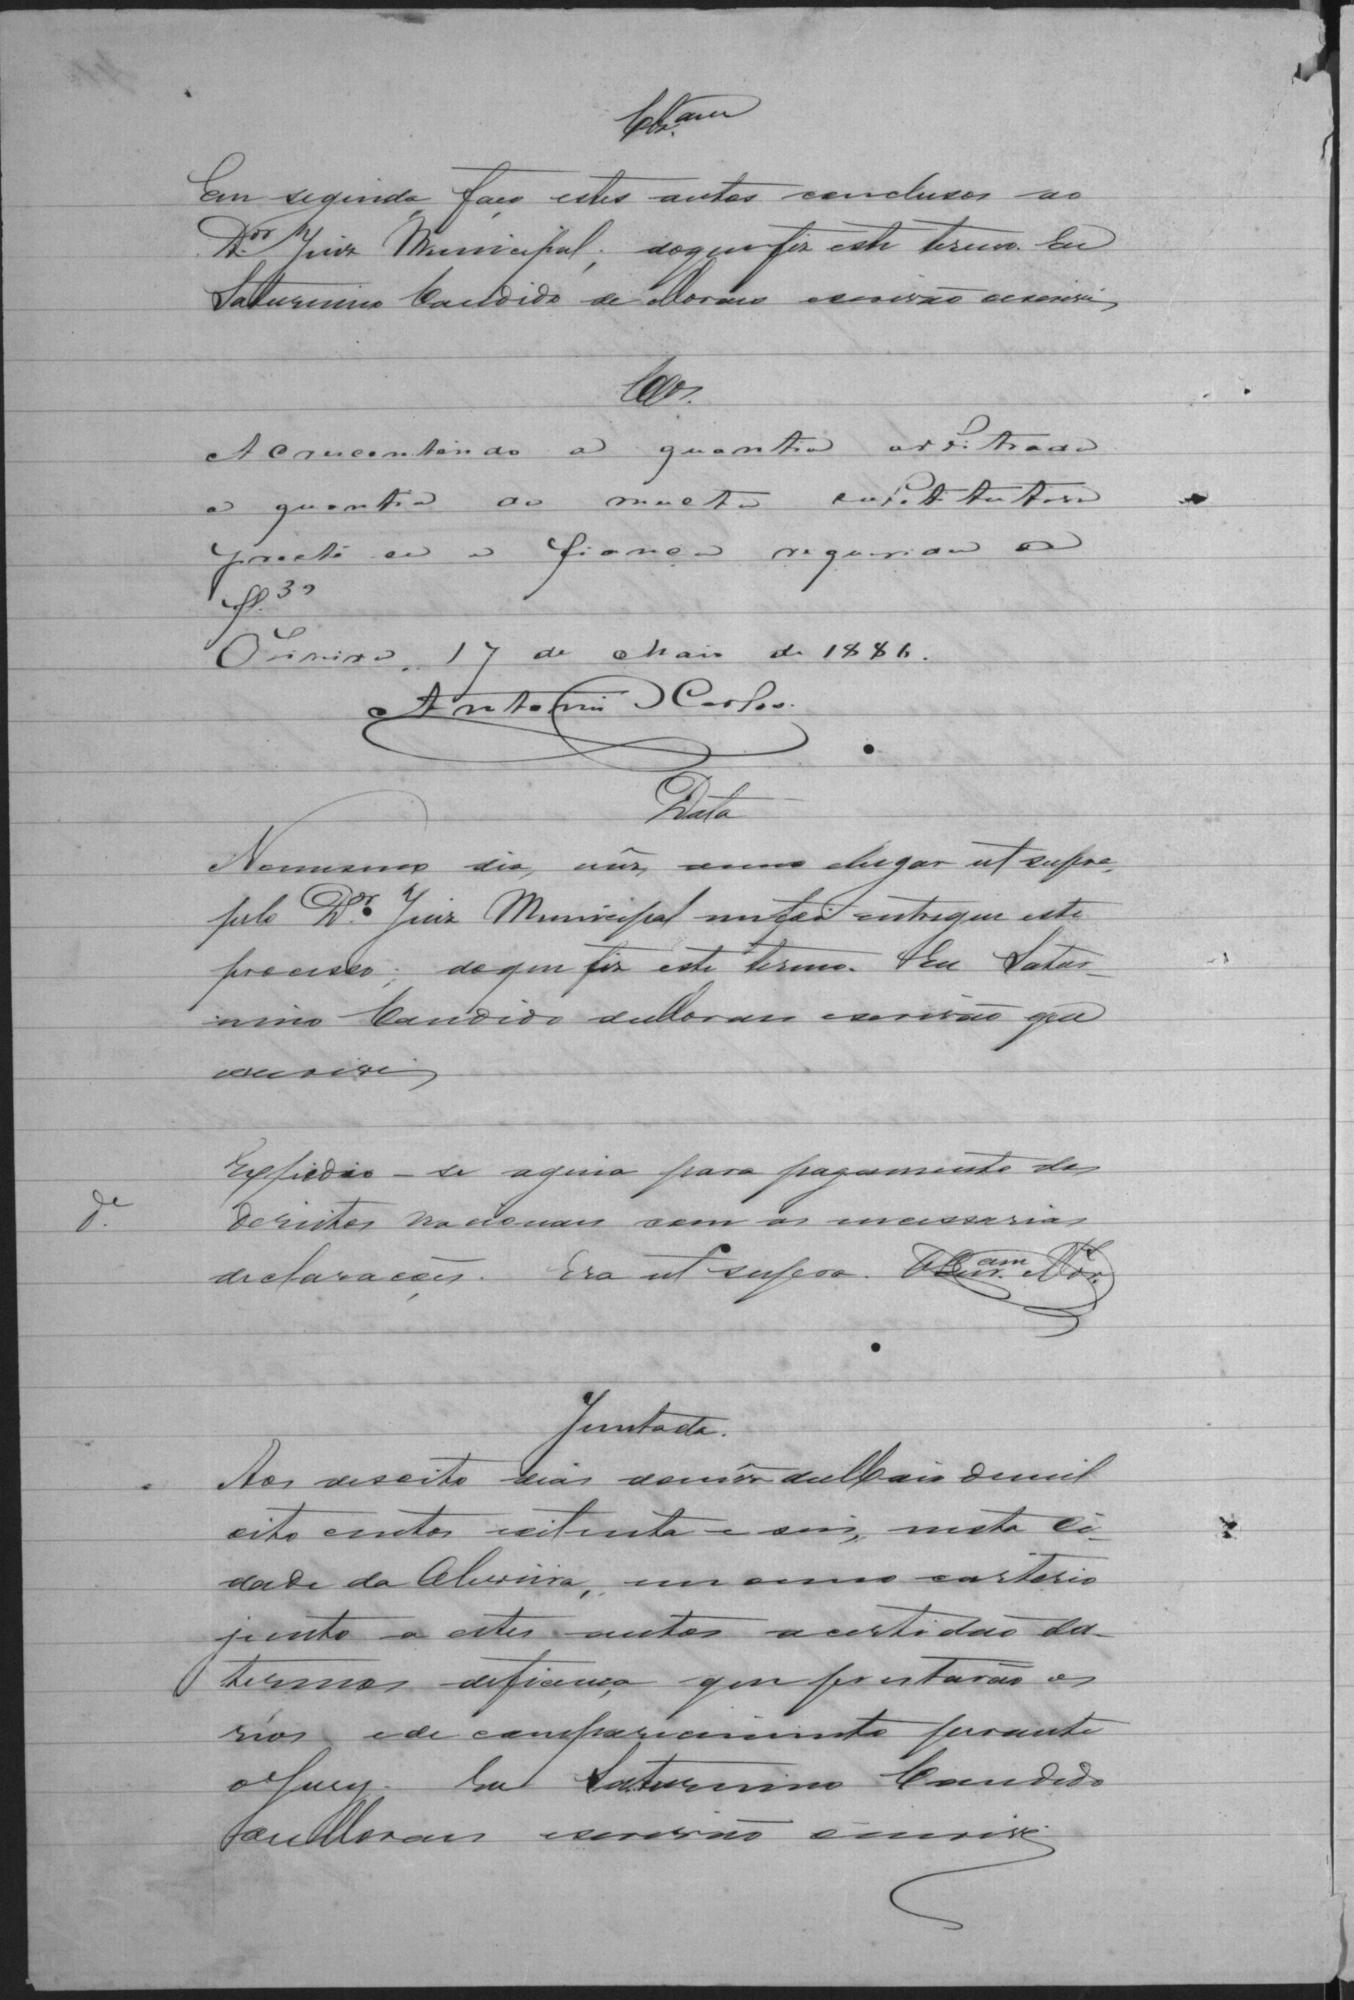 Clz.am
Em seguida, faço estes autos conclusos ao
Dor Juiz Municipal; doque fiz este termo. Eu
Saturnino Candido de Moraes escrivão o escrivi
Clos.
Accrescentando a quantia arbitrada
a quantia da multa substitutiva
preste se a fiança requerida a
fl. 39
Oliveira, 17 de Maio de 1886.
Antonio Carlos
Data
Nomesmo dia, mez, anno elugar ut supra,
pelo Dor Juiz Municipal mefoi entregue este
processo; doque fiz este termo. Eu Satur-
nino Candido deMoraes escrivão que
escrivi
Expedio-se aguia para pagamento dos
de
Dereitos nacionaes com as necessarias
declarações. Era ut supra.
Juntada.
Aos desoito dias domêz deMaio demil
oito centos eoitenta e seis, nesta Ci-
dade da Oliveira, em omeo cartorio
junto a estes autos acertidão dos
termos defiança que prestarão os
réos ede comparecimento perante
oJury. Eu Saturnino Candido
deMoraes escrivão escrivi